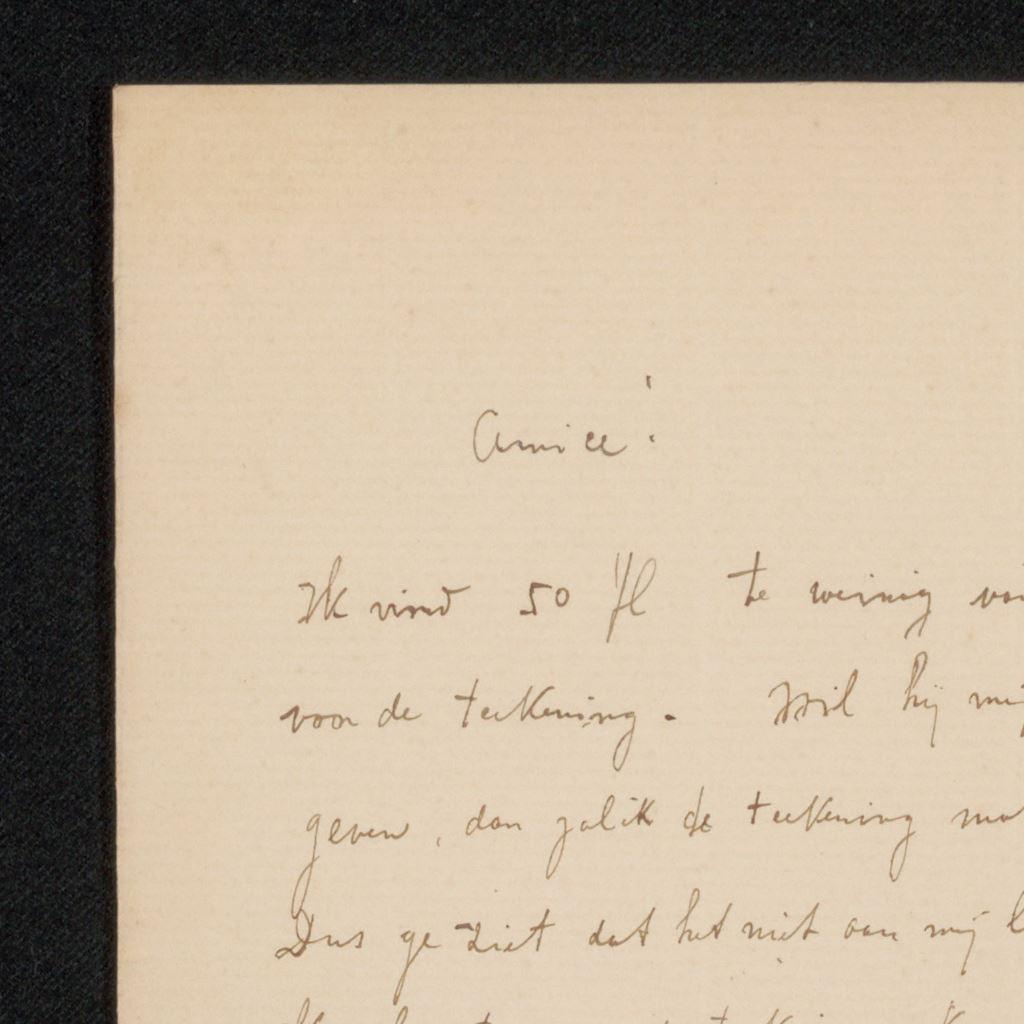 Amice!
Ik vind 50 fl te weinig
voor de teekening. Wil hij
geven, dan zal ik de teekening
Dus ge ziet dat het niet aan mij